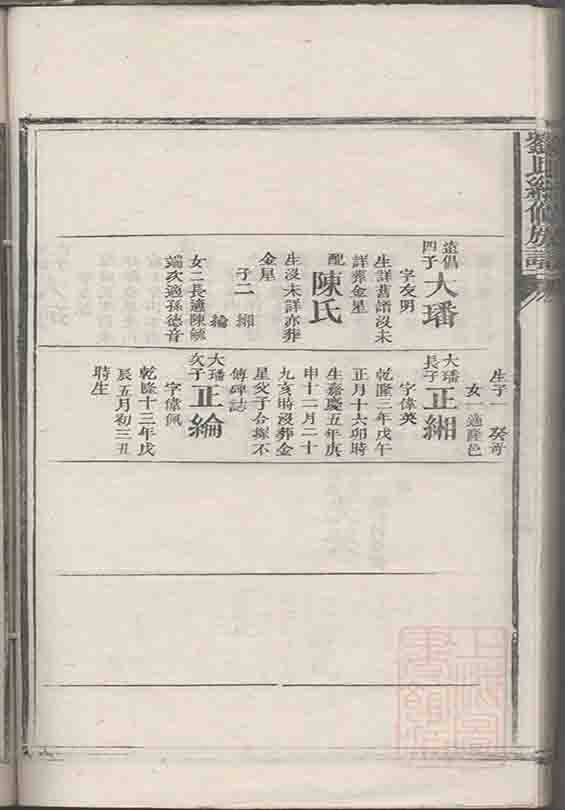 劉氏續修族譜
遠倡四子
大璠
字友男
生詳舊譜沒未
詳葬金星
配陳氏
生沒未詳亦葬
金星
子二 緗
綸
女二長適陳
端次適孫德音
生子一 癸
女一 適
大璠長子
正緗
字偉英
乾隆三年戊午
正月十六卯時
生嘉慶五年庚
申十二月二十
九亥時沒葬金
星父子合塚不
傅碑誌
大璠次子
正綸
字偉佩
乾隆十三年戊
辰五月初三丑
時生